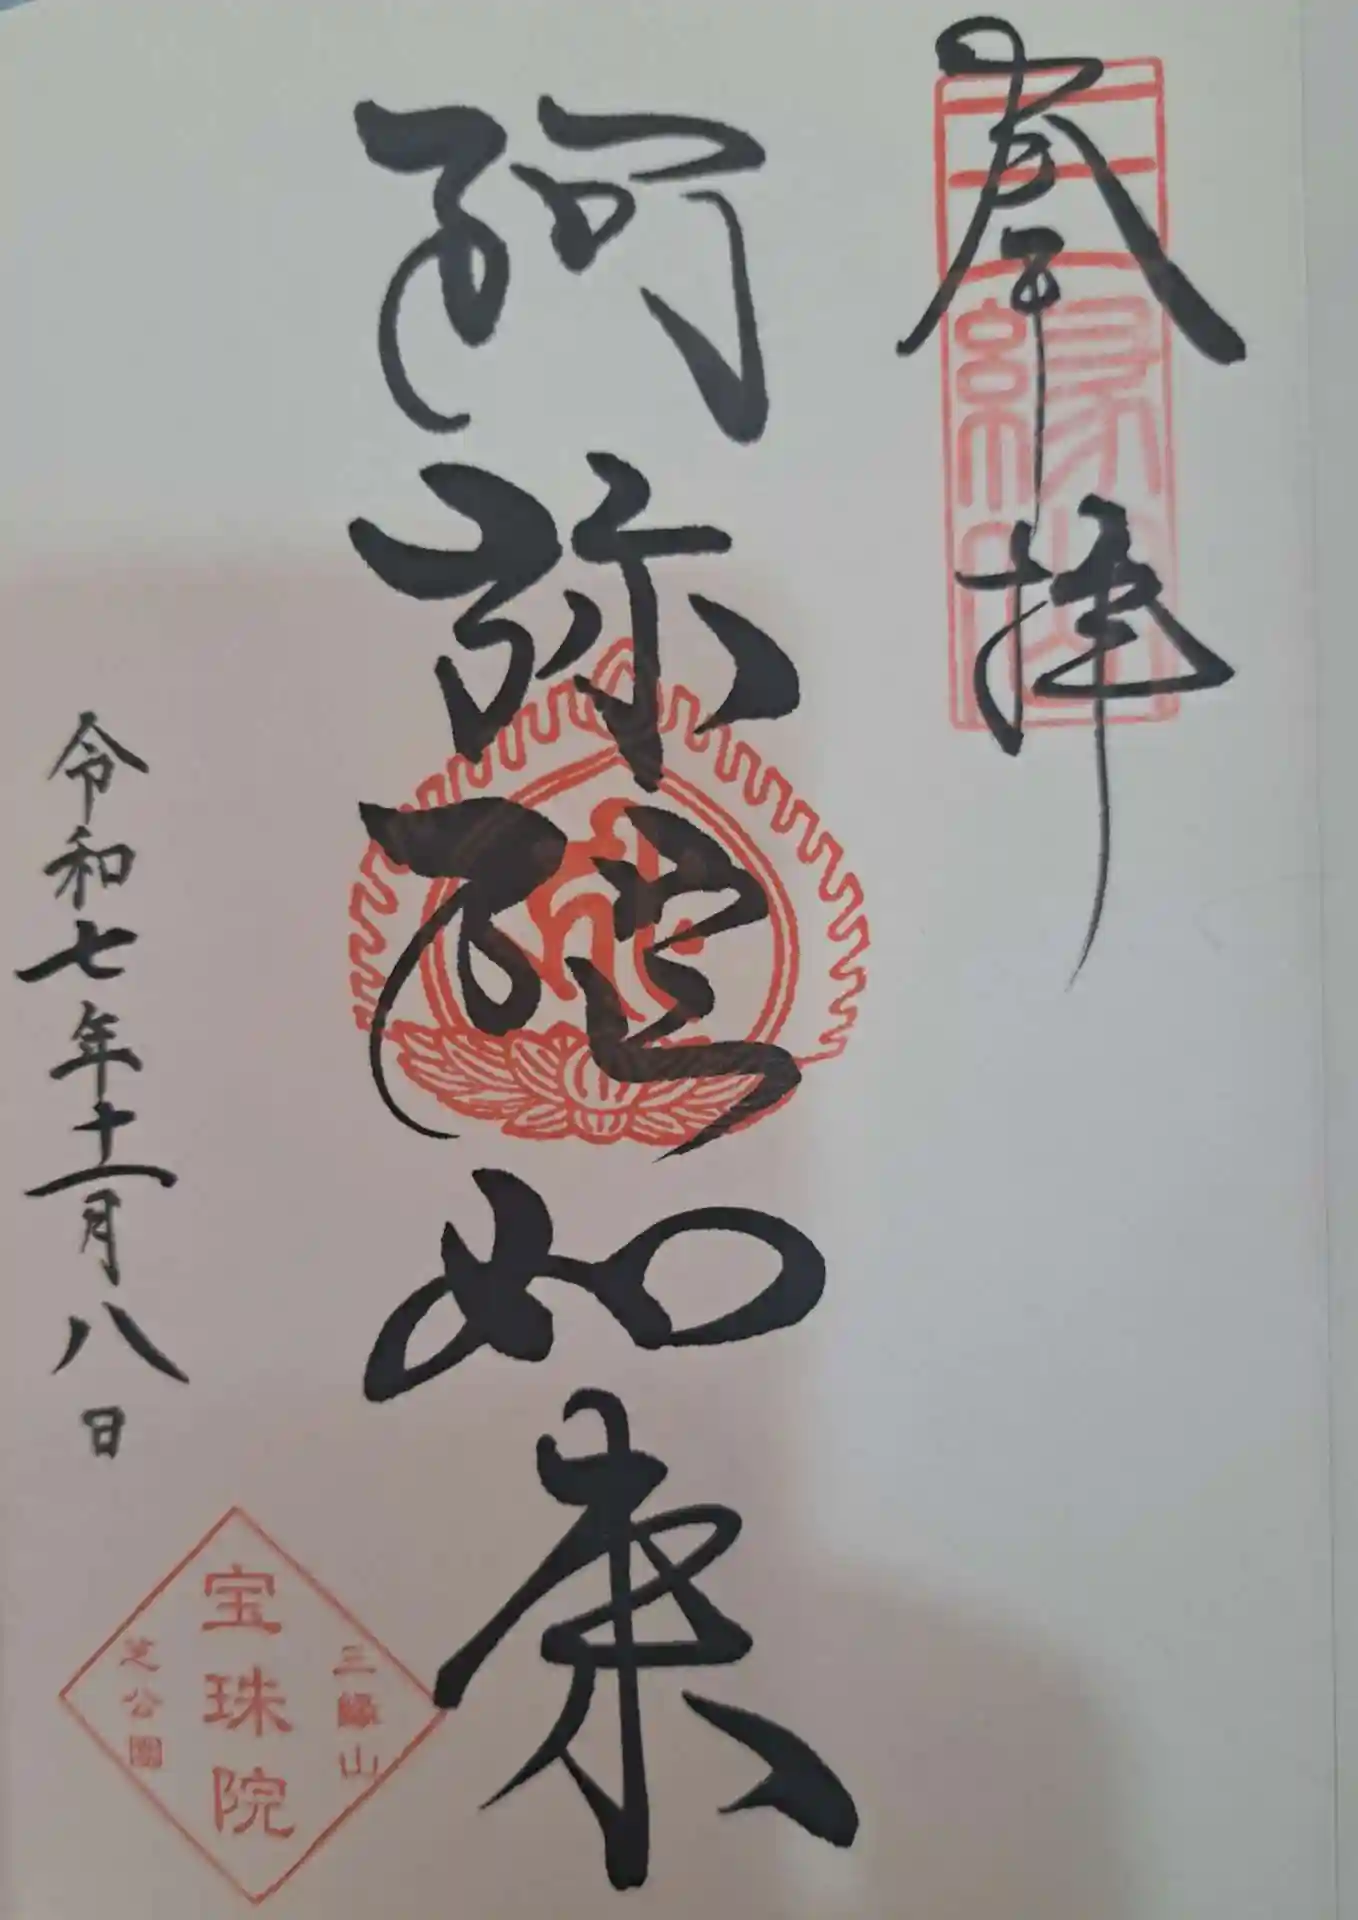 奉拝
三縁山
阿弥陀如来
令和七年十一月八日
三縁山
宝珠院
芝公園